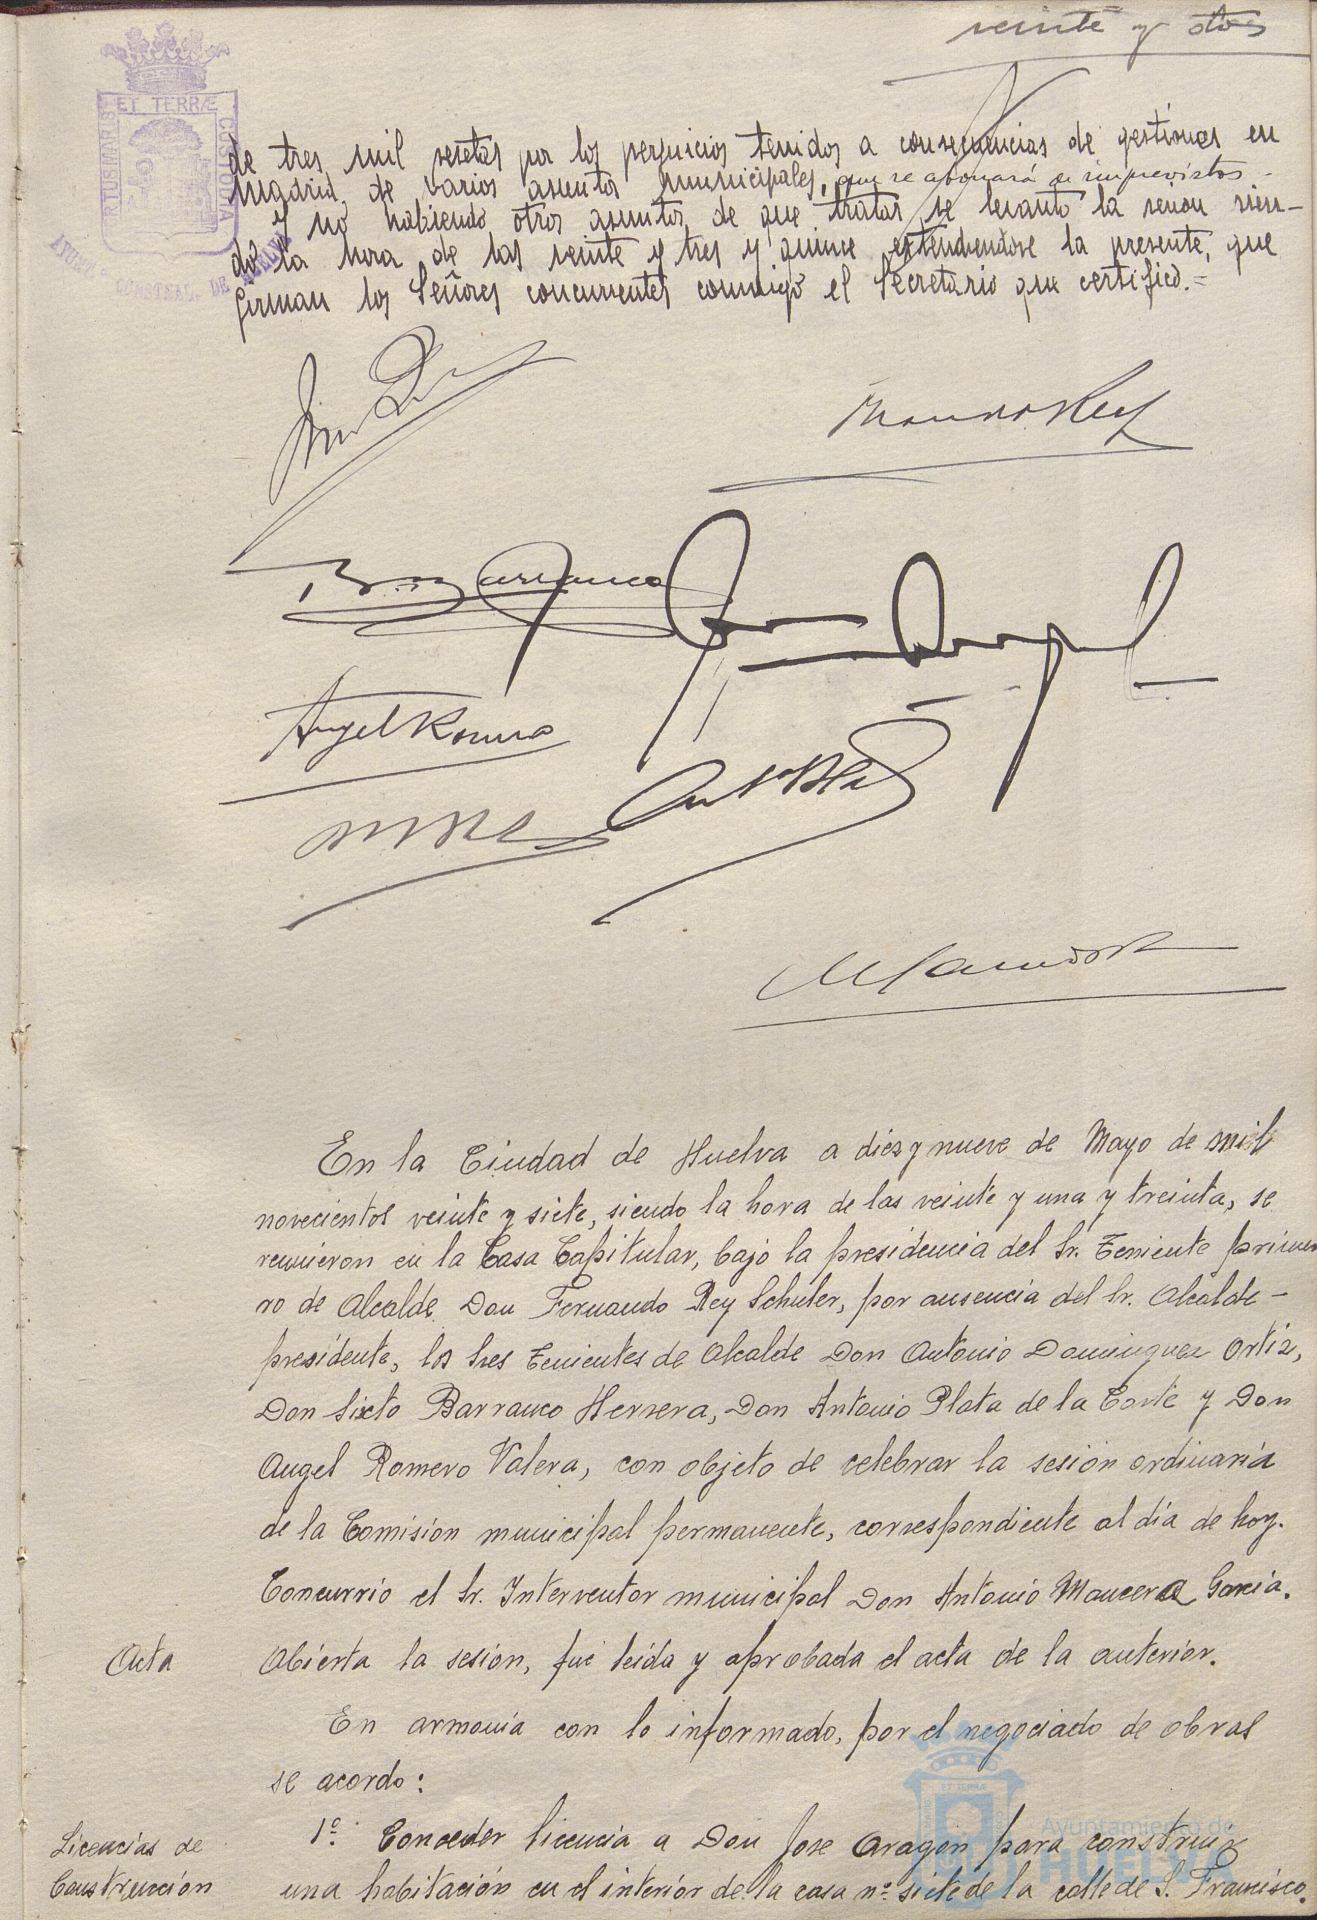 veinte y dos
ET TERRÆ
PORTUS MARIS
CUSTODIA
de tres mil pesetas por los perjuicios tenidos a consecuencias de gestiones en
Madrid, de varios asuntos municipales, que se abonará de imprevistos.
Y no habiendo otros asuntos de que tratar se levantó la sesion sien-
do la hora de las veinte y tres y quince extendiendose la presente, que
firman los Señores concurrentes conmigo el Secretario que certifico.=
Fernando Rey
B. Barranco
Angel Romero
Ant Plata
En la Ciudad de Huelva a diez y nueve de Mayo de mil
novecientos veinte y siete, siendo la hora de las veinte y una y treinta, se
reunieron en la Casa Capitular, bajo la presidencia del Sr. Teniente prime
ro de Alcalde Don Fernando Rey Schuler, por ausencia del Sr. Alcalde-
presidente, los tres Tenientes de Alcalde Don Antonio Dominguez Ortiz,
Don Sixto Barranco Herrera, Don Antonio Plata de la Corte y Don
Angel Romero Valera, con objeto de celebrar la sesión ordinaria
de la Comisión municipal permanente, correspondiente al día de hoy.
Concurrio el Sr. Interventor municipal Don Antonio Mancera García.
Acta
Abierta la sesión, fue leída y aprobada el acta de la anterior.
En armonía con lo informado, por el negociado de obras
se acordo:
Licencias de
Construcción
1º. Conceder licencia a Don Jose Aragón para construir
una habitación en el interior de la casa nº. siete de la calle de S. Francisco.
Ayuntamiento de
HUELVA